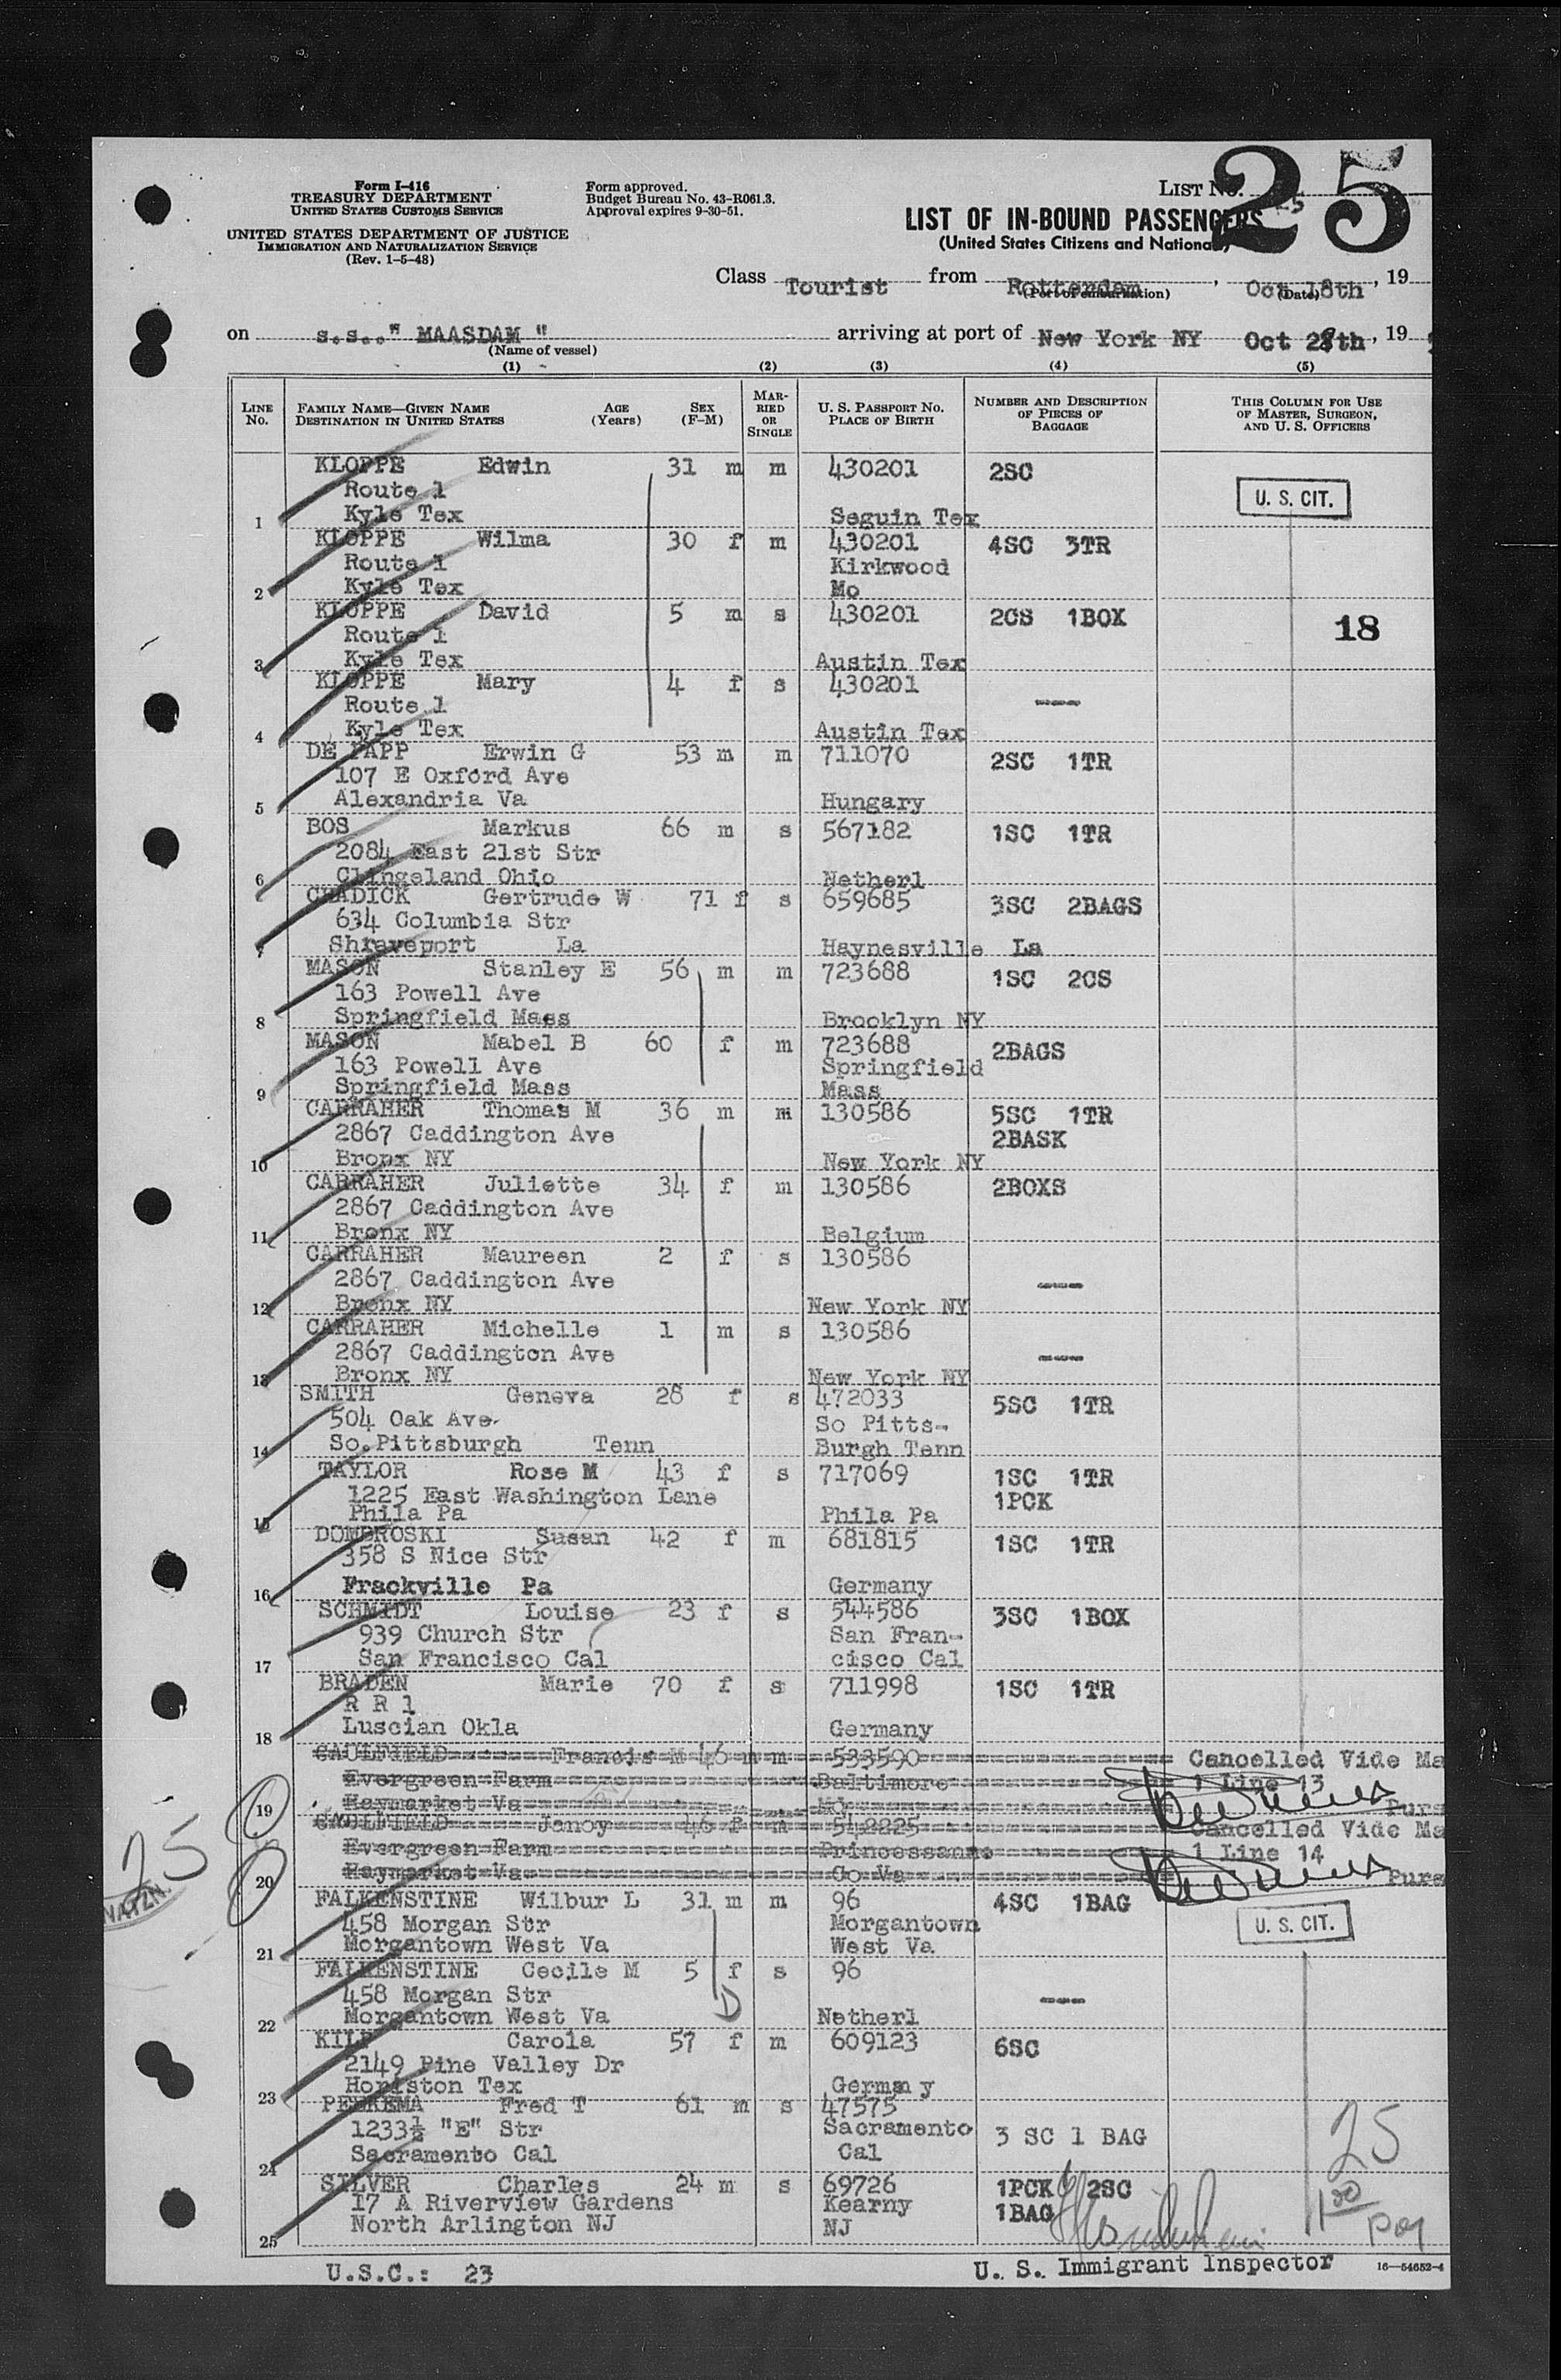 Form I-416
TREASURY DEPARTMENT
UNITED STATES CUSTOMS SERVICE
UNITED STATES DEPARTMENT OF JUSTICE
IMMIGRATION AND NATURALIZATION SERVICE
(Rev. 1-5-48)
Form approved.
Budget Bureau No. 43-R061.3.
Approval expires 9-30-51.
LIST No. 25
LIST OF IN-BOUND PASSENGERS
(United States Citizens and Nationals)
Class Tourist from Rotterdam, Oct 18th, 19
(Port of embarkation) (Date)
on s.s.." MAASDAM " arriving at port of New York NY Oct 28th, 19
(Name of vessel)
(1) (2) (3) (4) (5)
LINE No. FAMILY NAME—GIVEN NAME DESTINATION IN UNITED STATES AGE (Years) SEX (F-M) MARRIED OR SINGLE U. S. PASSPORT No. PLACE OF BIRTH NUMBER AND DESCRIPTION OF PIECES OF BAGGAGE THIS COLUMN FOR USE OF MASTER, SURGEON, AND U. S. OFFICERS
KLOPPE Edwin 31 m m 430201 2SC
Route 1 U. S. CIT.
1 Kyle Tex Seguin Tex
KLOPPE Wilma 30 f m 430201 4SC 3TR
Route 1 Kirkwood
2 Kyle Tex Mo
KLOPPE David 5 m s 430201 2CS 1BOX
Route 1 18
3 Kyle Tex Austin Tex
KLOPPE Mary 4 f s 430201
Route 1 ----
4 Kyle Tex Austin Tex
DE PAPP Erwin G 53 m m 711070 2SC 1TR
107 E Oxford Ave
5 Alexandria Va Hungary
BOS Markus 66 m s 567182 1SC 1TR
2084 East 21st Str
6 Clingeland Ohio Netherl
CHADICK Gertrude W 71 f s 659685 3SC 2BAGS
634 Columbia Str
7 Shraveport La Haynesville La
MASON Stanley E 56 m m 723688 1SC 2CS
163 Powell Ave
8 Springfield Mass Brooklyn NY
MASON Mabel B 60 f m 723688 2BAGS
163 Powell Ave Springfield
9 Springfield Mass Mass
CARRAHER Thomas M 36 m m 130586 5SC 1TR
2867 Caddington Ave 2BASK
10 Bronx NY New York NY
CARRAHER Juliette 34 f m 130586 2BOXS
2867 Caddington Ave
11 Bronx NY Belgium
CARRAHER Maureen 2 f s 130586
2867 Caddington Ave ----
12 Bronx NY New York NY
CARRAHER Michelle 1 m s 130586
2867 Caddington Ave ----
13 Bronx NY New York NY
SMITH Geneva 28 f s 472033 5SC 1TR
504 Oak Ave. So Pitts-
14 So.Pittsburgh Tenn Burgh Tenn
TAYLOR Rose M 43 f s 717069 1SC 1TR
1225 East Washington Lane 1PCK
15 Phila Pa Phila Pa
DOMBROSKI Susan 42 f m 681815 1SC 1TR
358 S Nice Str
16 Frackville Pa Germany
SCHMIDT Louise 23 f s 544586 3SC 1BOX
939 Church Str San Fran-
17 San Francisco Cal cisco Cal
BRADEN Marie 70 f s 711998 1SC 1TR
R R 1
18 Luscian Okla Germany
CAULFIELD Francis M 46 m m 533590 Cancelled Vide Ma
Evergreen Farm Baltimore 1 Line 13
19 Haymarket Va Md Purs
CAULFIELD Jancy 46 f m 542225 Cancelled Vide Ma
Evergreen Farm Princessanne 1 Line 14
20 Haymarket Va Co Va Purs
25
NATZN.
FALKENSTINE Wilbur L 31 m m 96 4SC 1BAG
458 Morgan Str Morgantown U. S. CIT.
21 Morgantown West Va West Va
FALKENSTINE Cecile M 5 f s 96
458 Morgan Str D ----
22 Morgantown West Va Netherl
Carola 57 f m 609123 6SC
2149 Pine Valley Dr
23 Tex Germany
Fred T 61 m s 47575
1233½ "E" Str Sacramento 3 SC 1 BAG 25
24 Sacramento Cal Cal
SILVER Charles 24 m s 69726 1PCK 2SC
17 A Riverview Gardens Kearny 1BAG
25 North Arlington NJ NJ
U.S.C.: 23 U. S. Immigrant Inspector 16—54652-4